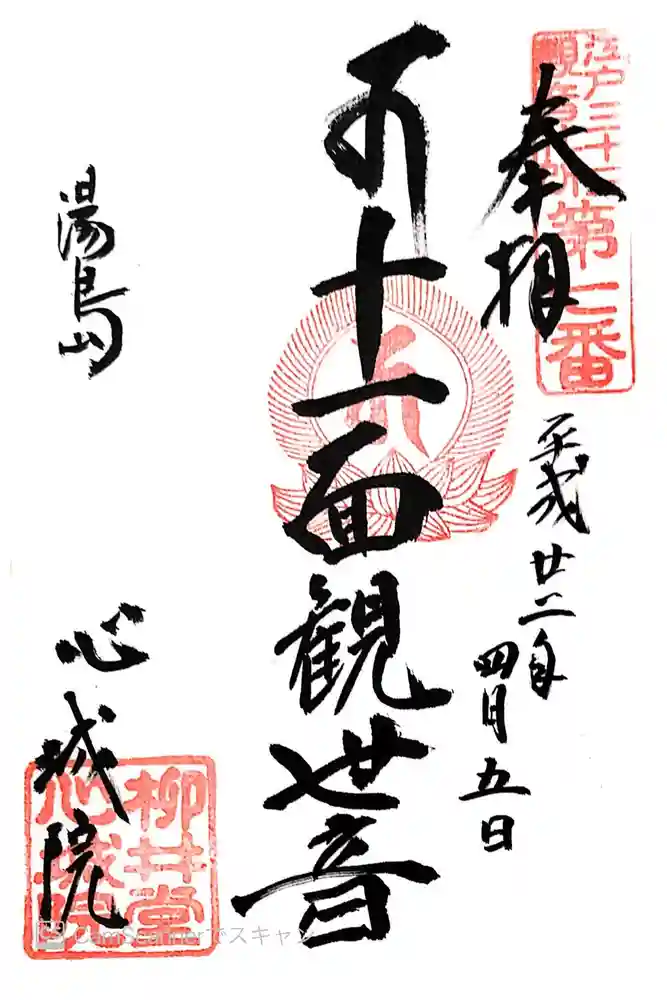 江戸三十三
観音札所
奉拝
平成廿二年
四月五日
十一面観世音
湯島
心城院
柳井堂
心城院
CamScannerでスキャン